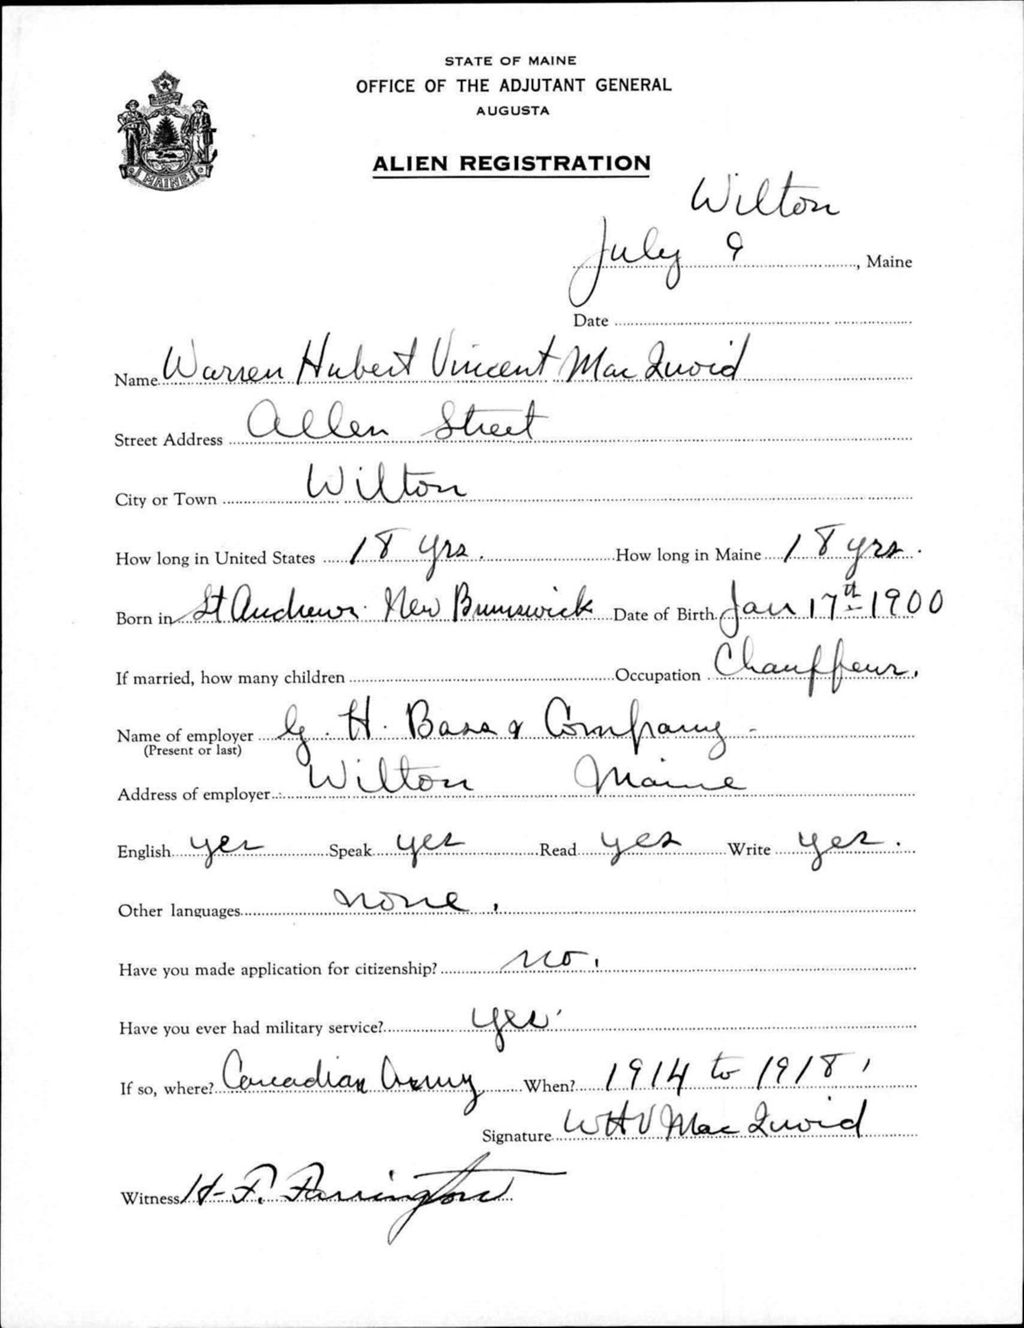 STATE OF MAINE
OFFICE OF THE ADJUTANT GENERAL
AUGUSTA
ALIEN REGISTRATION
MAINE
Wilton
July 9, Maine
Date
Name Warren Hubert Vincent Mac Quoid
Street Address Allen Street
City or Town Wilton
How long in United States 18 yrs. How long in Maine 18 yrs.
Born in St Andrews New Brunswick Date of Birth Jan 17th 1900
If married, how many children Occupation Chauffeur.
Name of employer G. H. Bass & Company -
(Present or last)
Address of employer Wilton Maine
English yes Speak yes Read yes Write yes.
Other languages none.
Have you made application for citizenship? no.
Have you ever had military service? yes
If so, where? Canadian Army When? 1914 to 1918
Signature WHV Mac Quoid
Witness H. F. Farrington